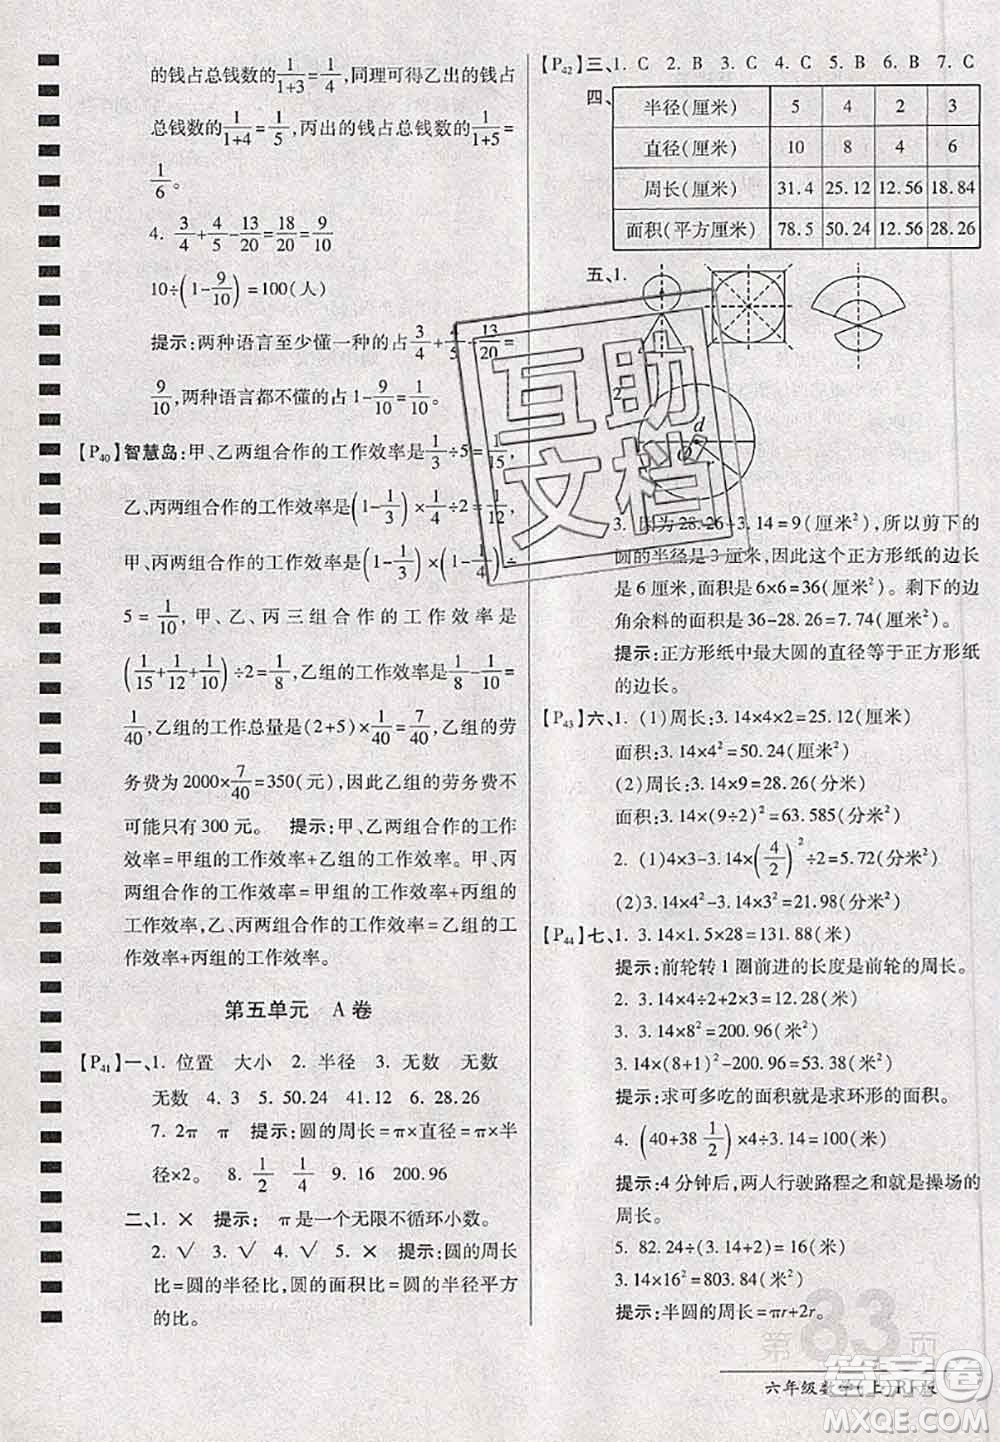 的钱占总钱数的1/(1+3)=1/4,同理可得乙出的钱占
总钱数的1/(1+4)=1/5,丙出的钱占总钱数的1/(1+5)=
1/6。
4. 3/4+4/5-13/20=18/20=9/10
10÷(1-9/10)=100(人)
提示:两种语言至少懂一种的占3/4+4/5-13/20=
9/10,两种语言都不懂的占1-9/10=1/10。
【P40】智慧岛:甲、乙两组合作的工作效率是1/3÷5=1/15,
乙、丙两组合作的工作效率是(1-1/3)×1/4÷2=1/12,
甲、丙两组合作的工作效率是(1-1/3)×(1-1/4)÷
5=1/10,甲、乙、丙三组合作的工作效率是
(1/15+1/12+1/10)÷2=1/8,乙组的工作效率是1/8-1/10=
1/40,乙组的工作总量是(2+5)×1/40=7/40,乙组的劳
务费为2000×7/40=350(元),因此乙组的劳务费不
可能只有300元。 提示:甲、乙两组合作的工作
效率=甲组的工作效率+乙组的工作效率。甲、丙
两组合作的工作效率=甲组的工作效率+丙组的
工作效率,乙、丙两组合作的工作效率=乙组的工
作效率+丙组的工作效率。
第五单元 A卷
【P41】一、1. 位置 大小 2. 半径 3. 无数 无数
无数 4. 3 5. 50.24 41.12 6. 28.26
7. 2π π 提示:圆的周长=π×直径=π×半
径×2。 8. 1/2 1/4 9. 16 200.96
二、1. × 提示: π是一个无限不循环小数。
2. √ 3. √ 4. √ 5. × 提示:圆的周长
比=圆的半径比,圆的面积比=圆的半径平方
的比。
【P42】三、1. C 2. B 3. C 4. C 5. C 6. B 7. C
四、
半径(厘米) 5 4 2 3
直径(厘米) 10 8 4 6
周长(厘米) 31.4 25.12 12.56 18.84
面积(平方厘米) 78.5 50.24 12.56 28.26
五、1.
2.
d
O
3. 因为28.26÷3.14=9(厘米²),所以剪下的
圆的半径是3厘米,因此这个正方形纸的边长
是6厘米,面积是6×6=36(厘米²)。剩下的边
角余料的面积是36-28.26=7.74(厘米²)。
提示:正方形纸中最大圆的直径等于正方形纸
的边长。
【P43】六、1. (1)周长:3.14×4×2=25.12(厘米)
面积:3.14×4²=50.24(厘米²)
(2)周长:3.14×9=28.26(分米)
面积:3.14×(9÷2)²=63.585(分米²)
2. (1)4×3-3.14×(4/2)²÷2=5.72(分米²)
(2)3.14×4²-3.14×3²=21.98(分米²)
【P44】七、1. 3.14×1.5×28=131.88(米)
提示:前轮转1圈前进的长度是前轮的周长。
2. 3.14×1=3.14(米)
3. 3.14×8²=200.96(米²)
3.14×(8+1)²-200.96=53.38(米²)
提示:求可多吃的面积就是求环形的面积。
4. (40+38 1/2)×4÷3.14=100(米)
提示:4分钟后,两人行驶路程之和就是操场的
周长。
5. 82.24÷(3.14+2)=16(米)
3.14×16²=803.84(米²)
提示:半圆的周长=πr+2r。
第83页
六年级数学(上)RJ版
互助
文档
答案圈
MXQE.COM